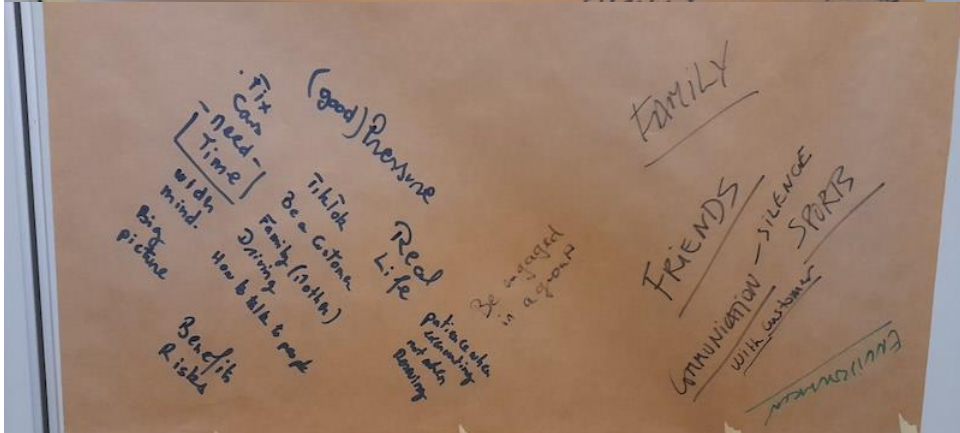 . Fix
Cars
- need -
Time
widen
mind.
Big
picture
(good) Pressure
TikTok
Be a Customer
Family (mother)
Driving
How to talk to people
Benefits
Risks
Real
Life
patience when
not when
Running
Be engaged
in a group
FAMILY
FRIENDS
COMMUNICATION - SILENCE
with customer
SPORTS